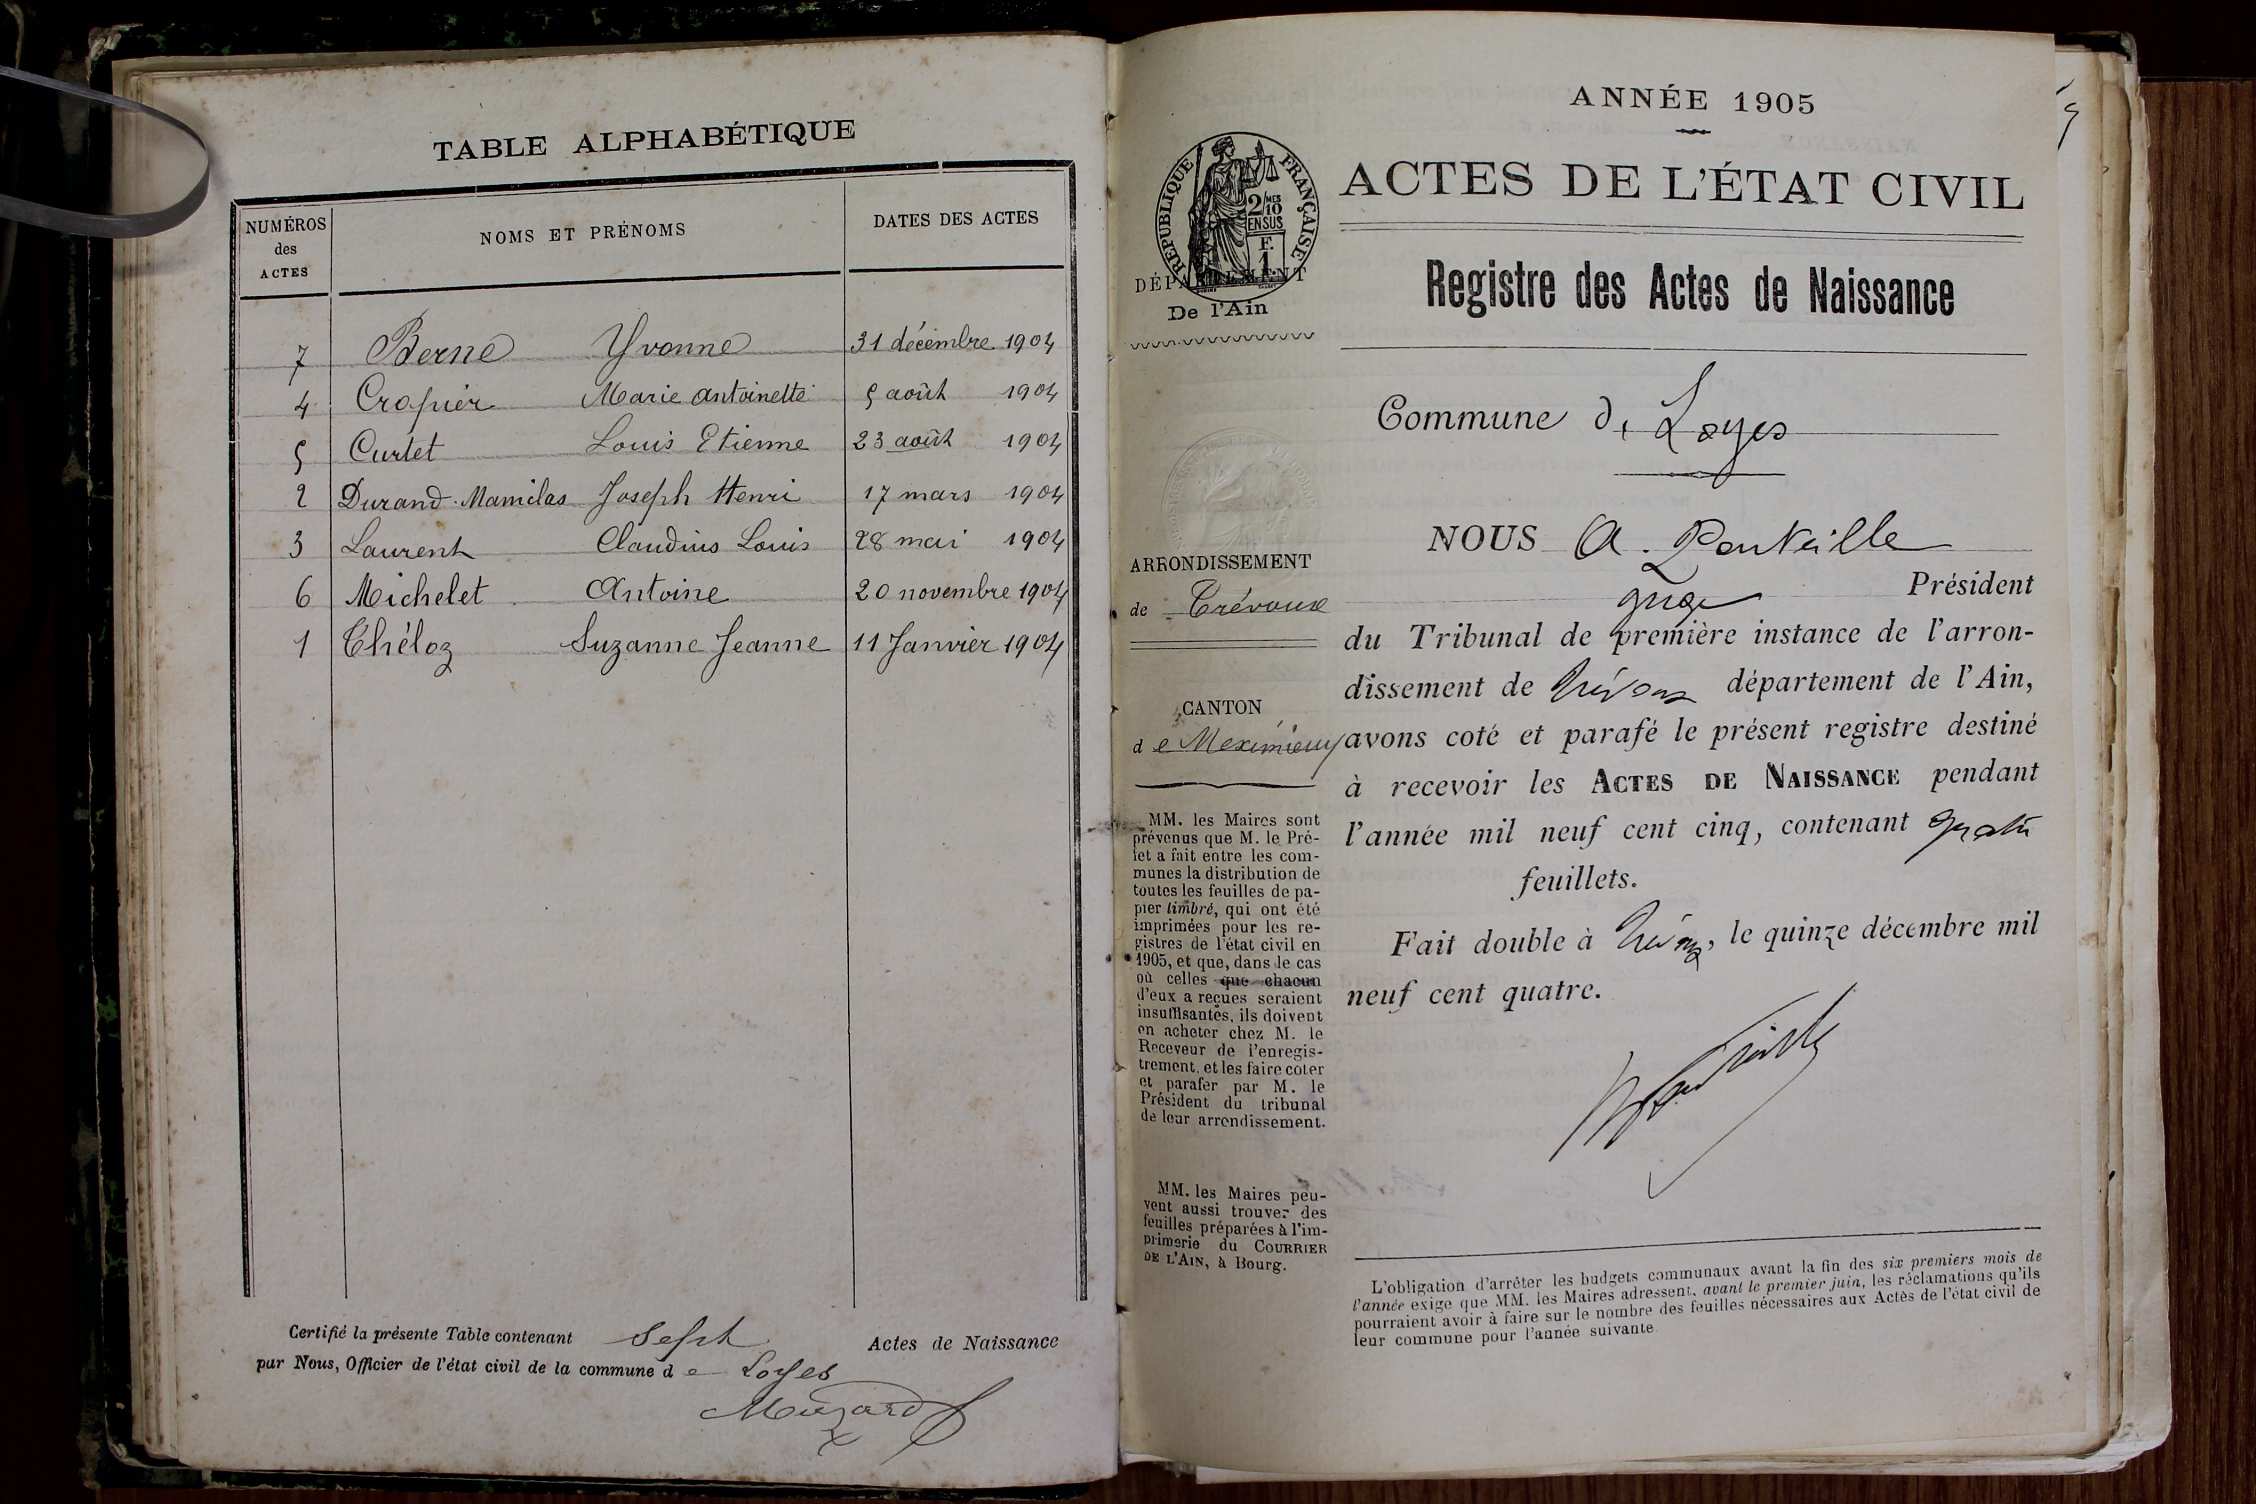 TABLE ALPHABÉTIQUE
NUMÉROS des ACTES NOMS ET PRÉNOMS DATES DES ACTES
7 Berne Yvonne 31 décembre 1904
4 Crapier Marie Antoinette 5 août 1904
5 Curtet Louis Etienne 23 août 1904
2 Durand-Mamilas Joseph Henri 17 mars 1904
3 Laurent Claudius Louis 28 mai 1904
6 Michelet Antoine 20 novembre 1904
1 Théloz Suzanne Jeanne 11 Janvier 1904
Certifié la présente Table contenant Sept Actes de Naissance
par Nous, Officier de l'état civil de la commune de Loyes
ANNÉE 1905
ACTES DE L'ÉTAT CIVIL
RÉPUBLIQUE FRANÇAISE
2/10 MES
EN SUS
F.
1
DÉPARTEMENT
De l'Ain
Registre des Actes de Naissance
Commune de Loyes
ARRONDISSEMENT
de Trévoux
CANTON
de Meximieux
MM. les Maires sont
prévenus que M. le Pré-
fet a fait entre les com-
munes la distribution de
toutes les feuilles de pa-
pier timbré, qui ont été
imprimées pour les re-
gistres de l'état civil en
1905, et que, dans le cas
où celles que chacun
d'eux a reçues seraient
insuffisantes, ils doivent
en acheter chez M. le
Receveur de l'enregis-
trement, et les faire coter
et parafer par M. le
Président du tribunal
de leur arrondissement.
MM. les Maires peu-
vent aussi trouver des
feuilles préparées à l'im-
primerie du COURRIER
DE L'AIN, à Bourg.
NOUS A.
juge Président
du Tribunal de première instance de l'arron-
dissement de Trévoux département de l'Ain,
avons coté et parafé le présent registre destiné
à recevoir les ACTES DE NAISSANCE pendant
l'année mil neuf cent cinq, contenant quatre
feuillets.
Fait double à Trévoux, le quinze décembre mil
neuf cent quatre.
L'obligation d'arrêter les budgets communaux avant la fin des six premiers mois de
l'année exige que MM. les Maires adressent, avant le premier juin, les réclamations qu'ils
pourraient avoir à faire sur le nombre des feuilles nécessaires aux Actes de l'état civil de
leur commune pour l'année suivante.